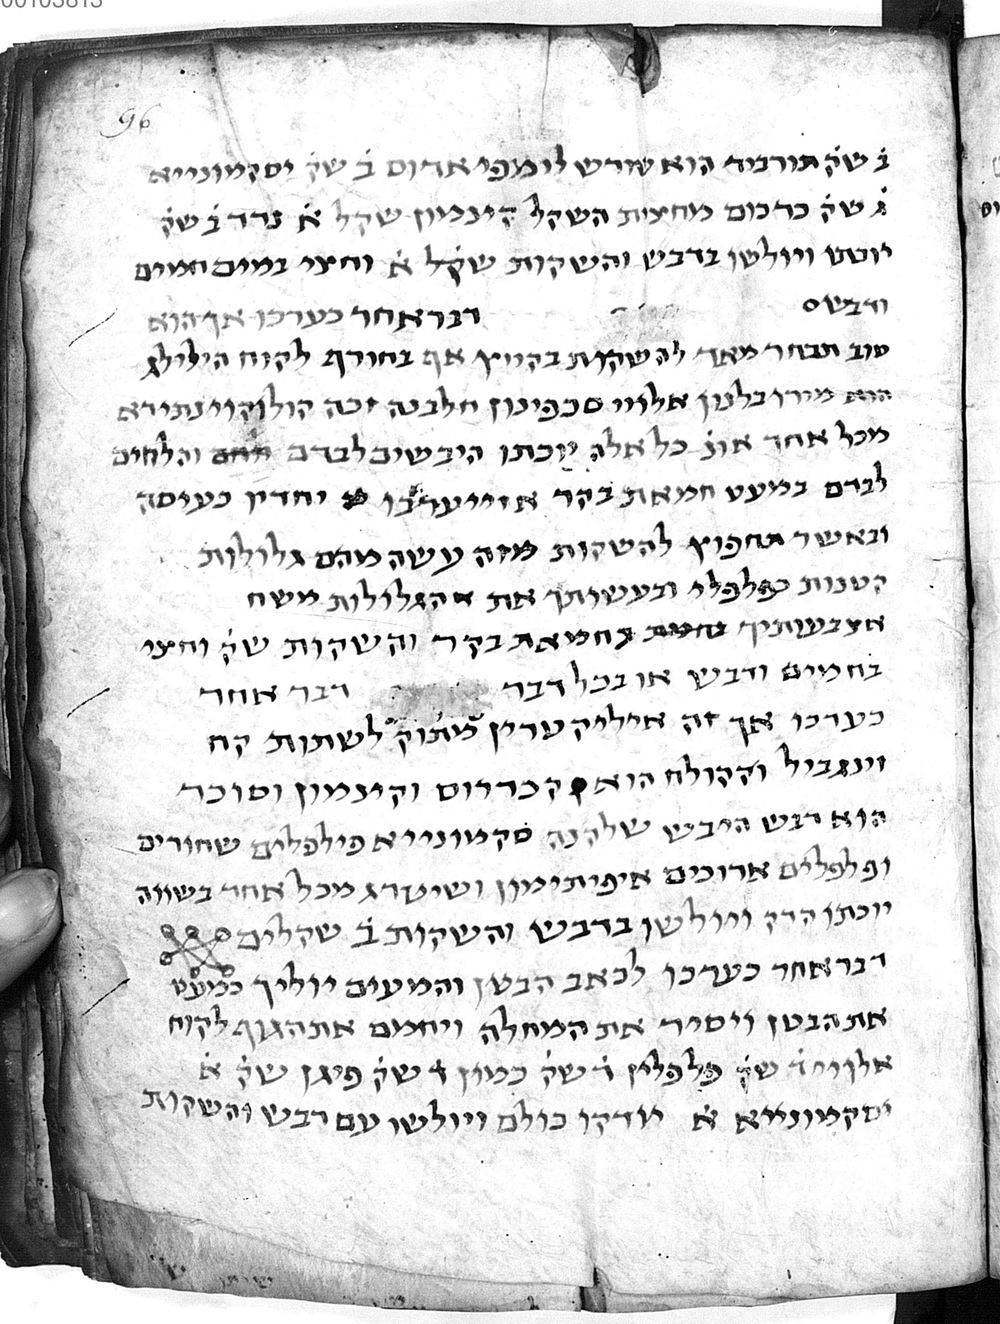 00103813
96
ב׳ שק׳ תורביד הוא שורש לימפי אדום ב׳ שק׳ יסקמונייא
ג׳ שק׳ כרכום מחצית השקל קינמון שקל א׳ נרד ב׳ שק׳
ויולשו בדבש והשקות שקל א׳ וחצי במים חמים
ודבש דבר אחר כערכו אך הוא
טוב תבחר מאד להשקות בקייץ אף בחורף לקוח הילילג
הוא מירובלנון אלווי סכפינון חלבנה זכה
מכל אחד אונ׳ כל אלה יוכתו היבשים לבדם והלחים
לבדם במעט חמאת בקר אזי יערבו יחדיו כעיסה
ובאשר תחפוץ להשקות מזה עשה מהם גלולות
קטנות כפלפלי ובעשותך את הגלולות משח
אצבעותיך בחמאת בקר והשקות שק׳ וחצי
בחמים ודבש או בכל דבר דבר אחר
כערכו אך זה איליק טרין מתוק לשתות קח
זינגביל והקולח הוא קכדרוס וקינמון וסוכר
הוא דבש היבש שלקנה סקמונייא פילפלים שחורים
ופלפלים ארוכים איפיתימון ושיטרג מכל אחד בשווה
יוכתו הדק ויולשו בדבש והשקות ב׳ שקלים
דבר אחר כערכו לכאב הבטן והמעים יוליך כמעט
את הבטן ויסיר את המחלה ויחמם את הגוף לקוח
שק׳ פלפלין ד׳ שק׳ כמון ד׳ שק׳ פיגן שק׳ א׳
יסקמונייא א׳ יודקו כולם ויולשו עם דבש והשקות